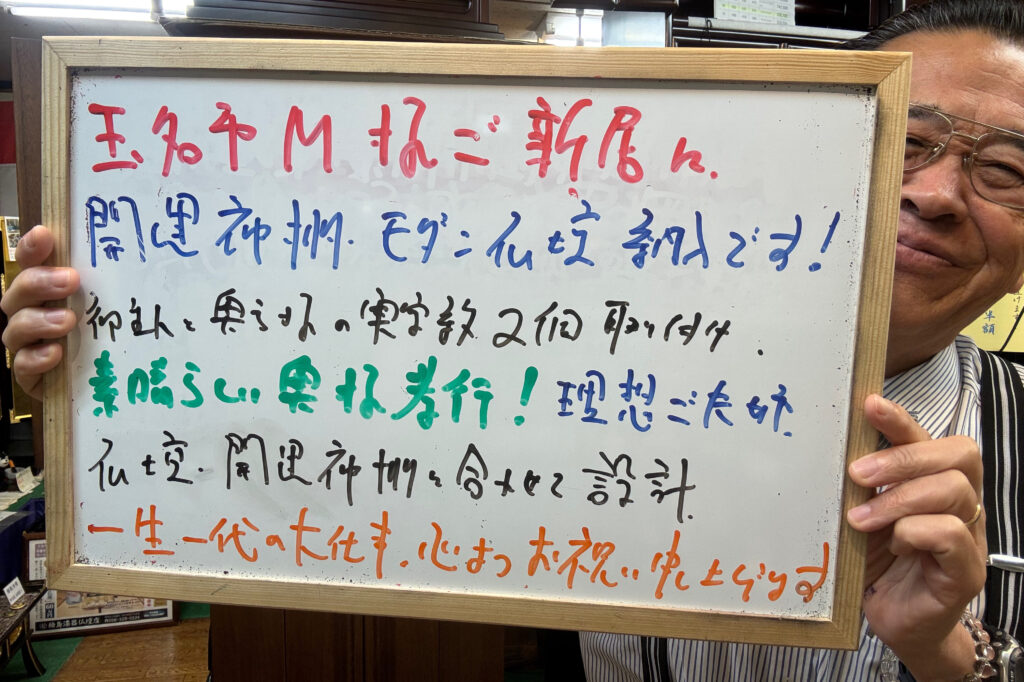 玉名市M様ご新居に.
開運神棚.モダン仏壇納入です!
御主人と奥さま様の実家数2個取り付け.
素晴らしい奥様孝行! 理想ご夫婦.
仏壇.開運神棚を合わせて設計.
一生一代の大仕事.心よりお祝い申し上げます
半額